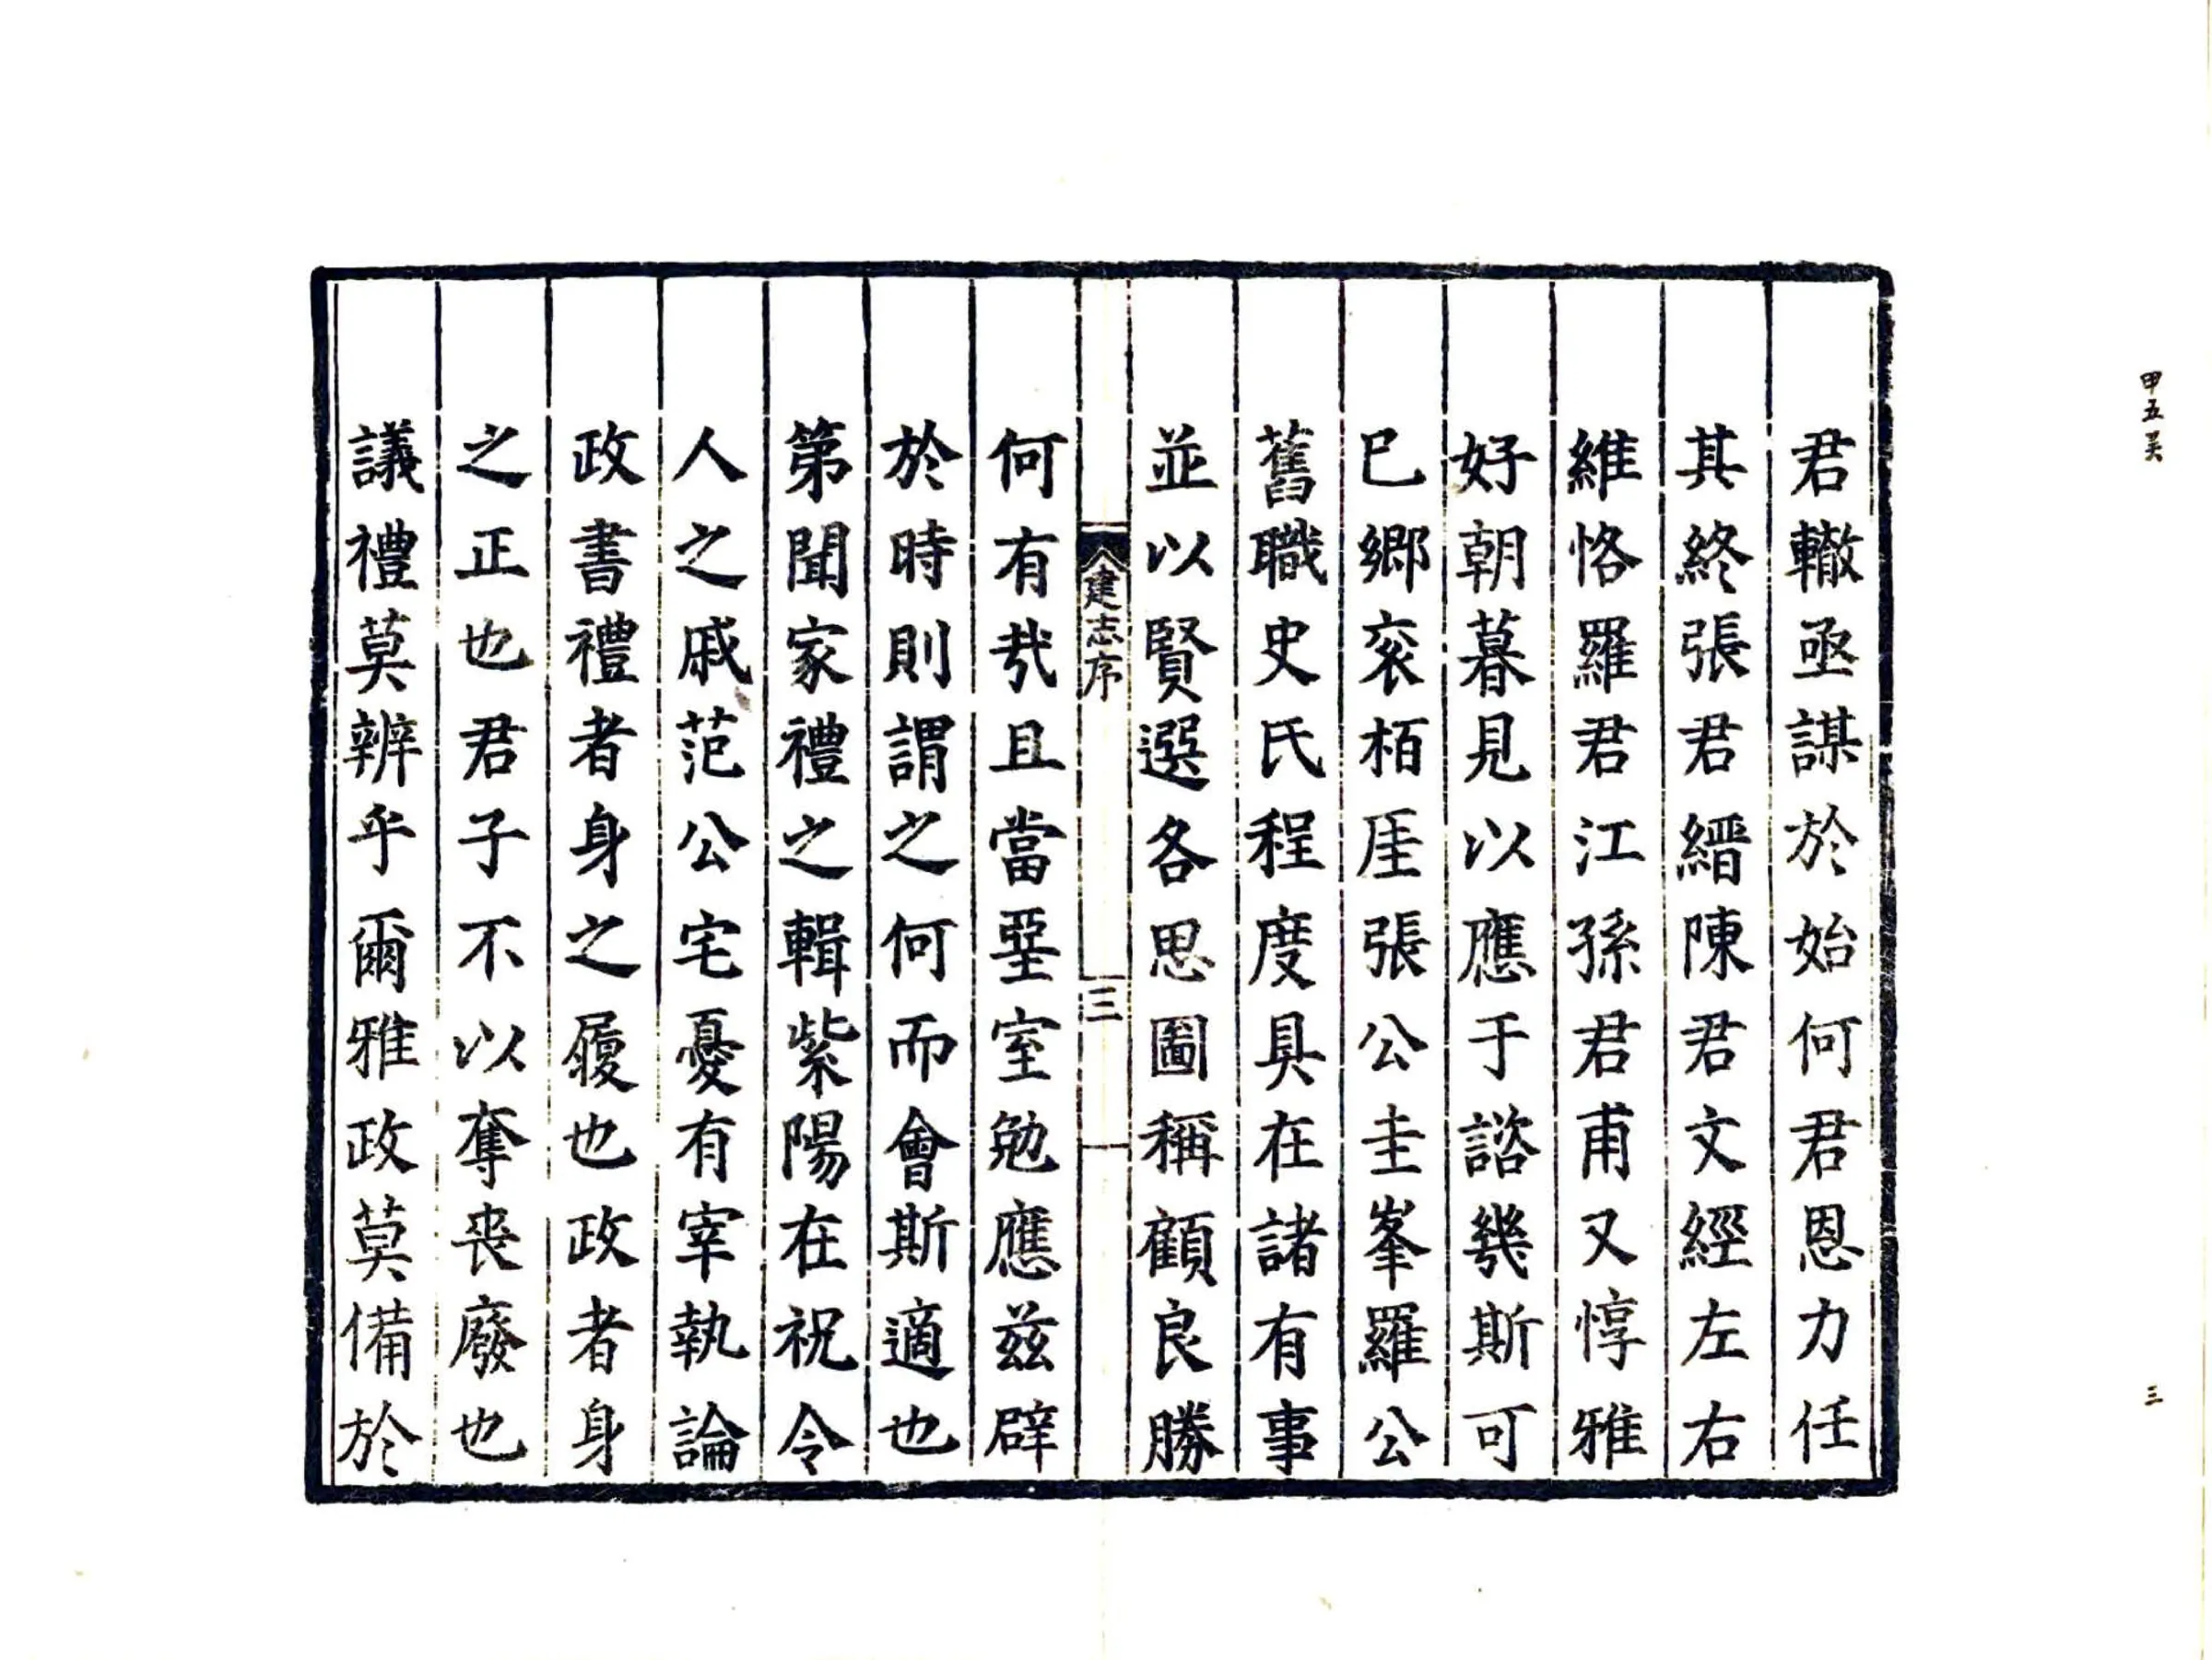 君轍亟謀於始何君恩力任
其終張君縉陳君文經左右
維恪羅君江孫君甫又惇雅
好朝暮見以應于諮幾斯可
巳鄉衮栢厓張公圭峯羅公
舊職史氏程度具在諸有事
並以賢選各思圖稱顧良勝
建志序
三
何有㢤且當堊室勉應茲辟
於時則謂之何而會斯適也
第聞家禮之輯紫陽在祝令
人之戚范公宅憂有宰執論
政書禮者身之履也政者身
之正也君子不以奪喪廢也
議禮莫辨乎爾雅政莫備於
甲五
三